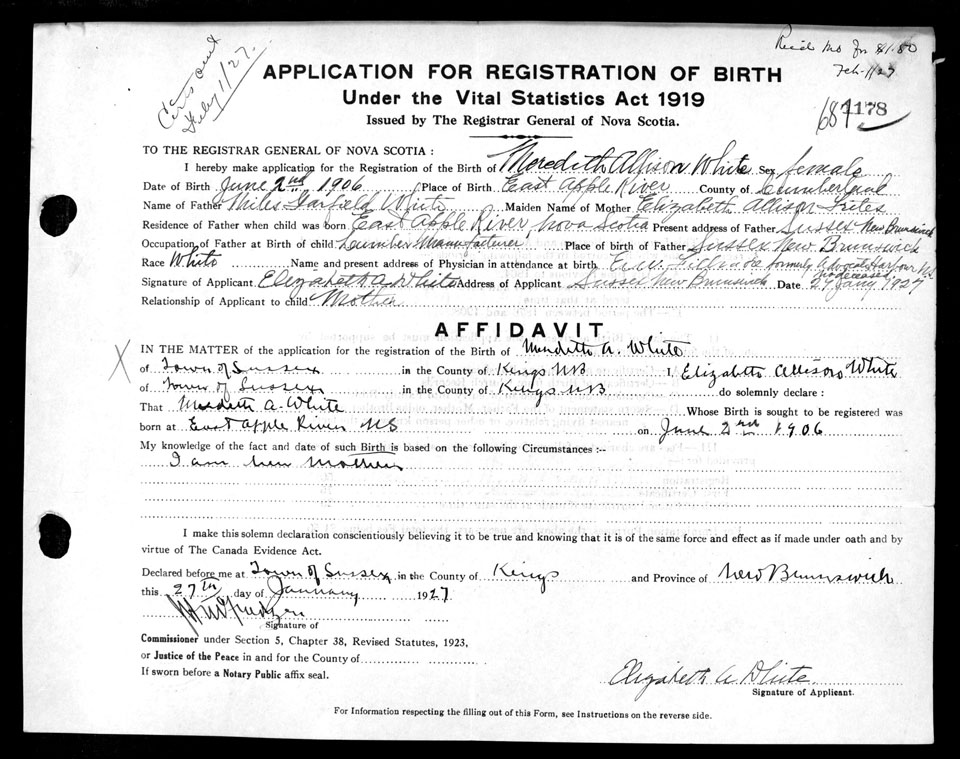 Recd Mo for $1.50
Feb-1/27
Certs out
July 1/27.
APPLICATION FOR REGISTRATION OF BIRTH
Under the Vital Statistics Act 1919
Issued by The Registrar General of Nova Scotia.
687 1178
TO THE REGISTRAR GENERAL OF NOVA SCOTIA :
I hereby make application for the Registration of the Birth of Meredith Allison White Sex female
Date of Birth June 2nd, 1906 Place of Birth East Apple River County of Cumberland
Name of Father Miles Garfield White Maiden Name of Mother Elizabeth Allison Frites
Residence of Father when child was born East Apple River, Nova Scotia Present address of Father Sussex New Brunswick
Occupation of Father at Birth of child Lumber Manufacturer Place of birth of Father Sussex New Brunswick
Race White Name and present address of Physician in attendance at birth formerly Advocate Harbour N.S.
now deceased
Signature of Applicant Elizabeth A White Address of Applicant Sussex New Brunswick Date 27 Jany 1927
Relationship of Applicant to child Mother
AFFIDAVIT
X IN THE MATTER of the application for the registration of the Birth of Meredith A. White
of Town of Sussex in the County of Kings NB I, Elizabeth Allison White
of Town of Sussex in the County of Kings NB do solemnly declare :
That Meredith A. White Whose Birth is sought to be registered was
born at East Apple River NS on June 2nd 1906
My knowledge of the fact and date of such Birth is based on the following Circumstances :--
I am her Mother
I make this solemn declaration conscientiously believing it to be true and knowing that it is of the same force and effect as if made under oath and by
virtue of The Canada Evidence Act.
Declared before me at Town of Sussex in the County of Kings and Province of New Brunswick
this 27th day of January 1927
Signature of
Commissioner under Section 5, Chapter 38, Revised Statutes, 1923,
or Justice of the Peace in and for the County of
If sworn before a Notary Public affix seal.
Elizabeth A White.
Signature of Applicant.
For Information respecting the filling out of this Form, see Instructions on the reverse side.